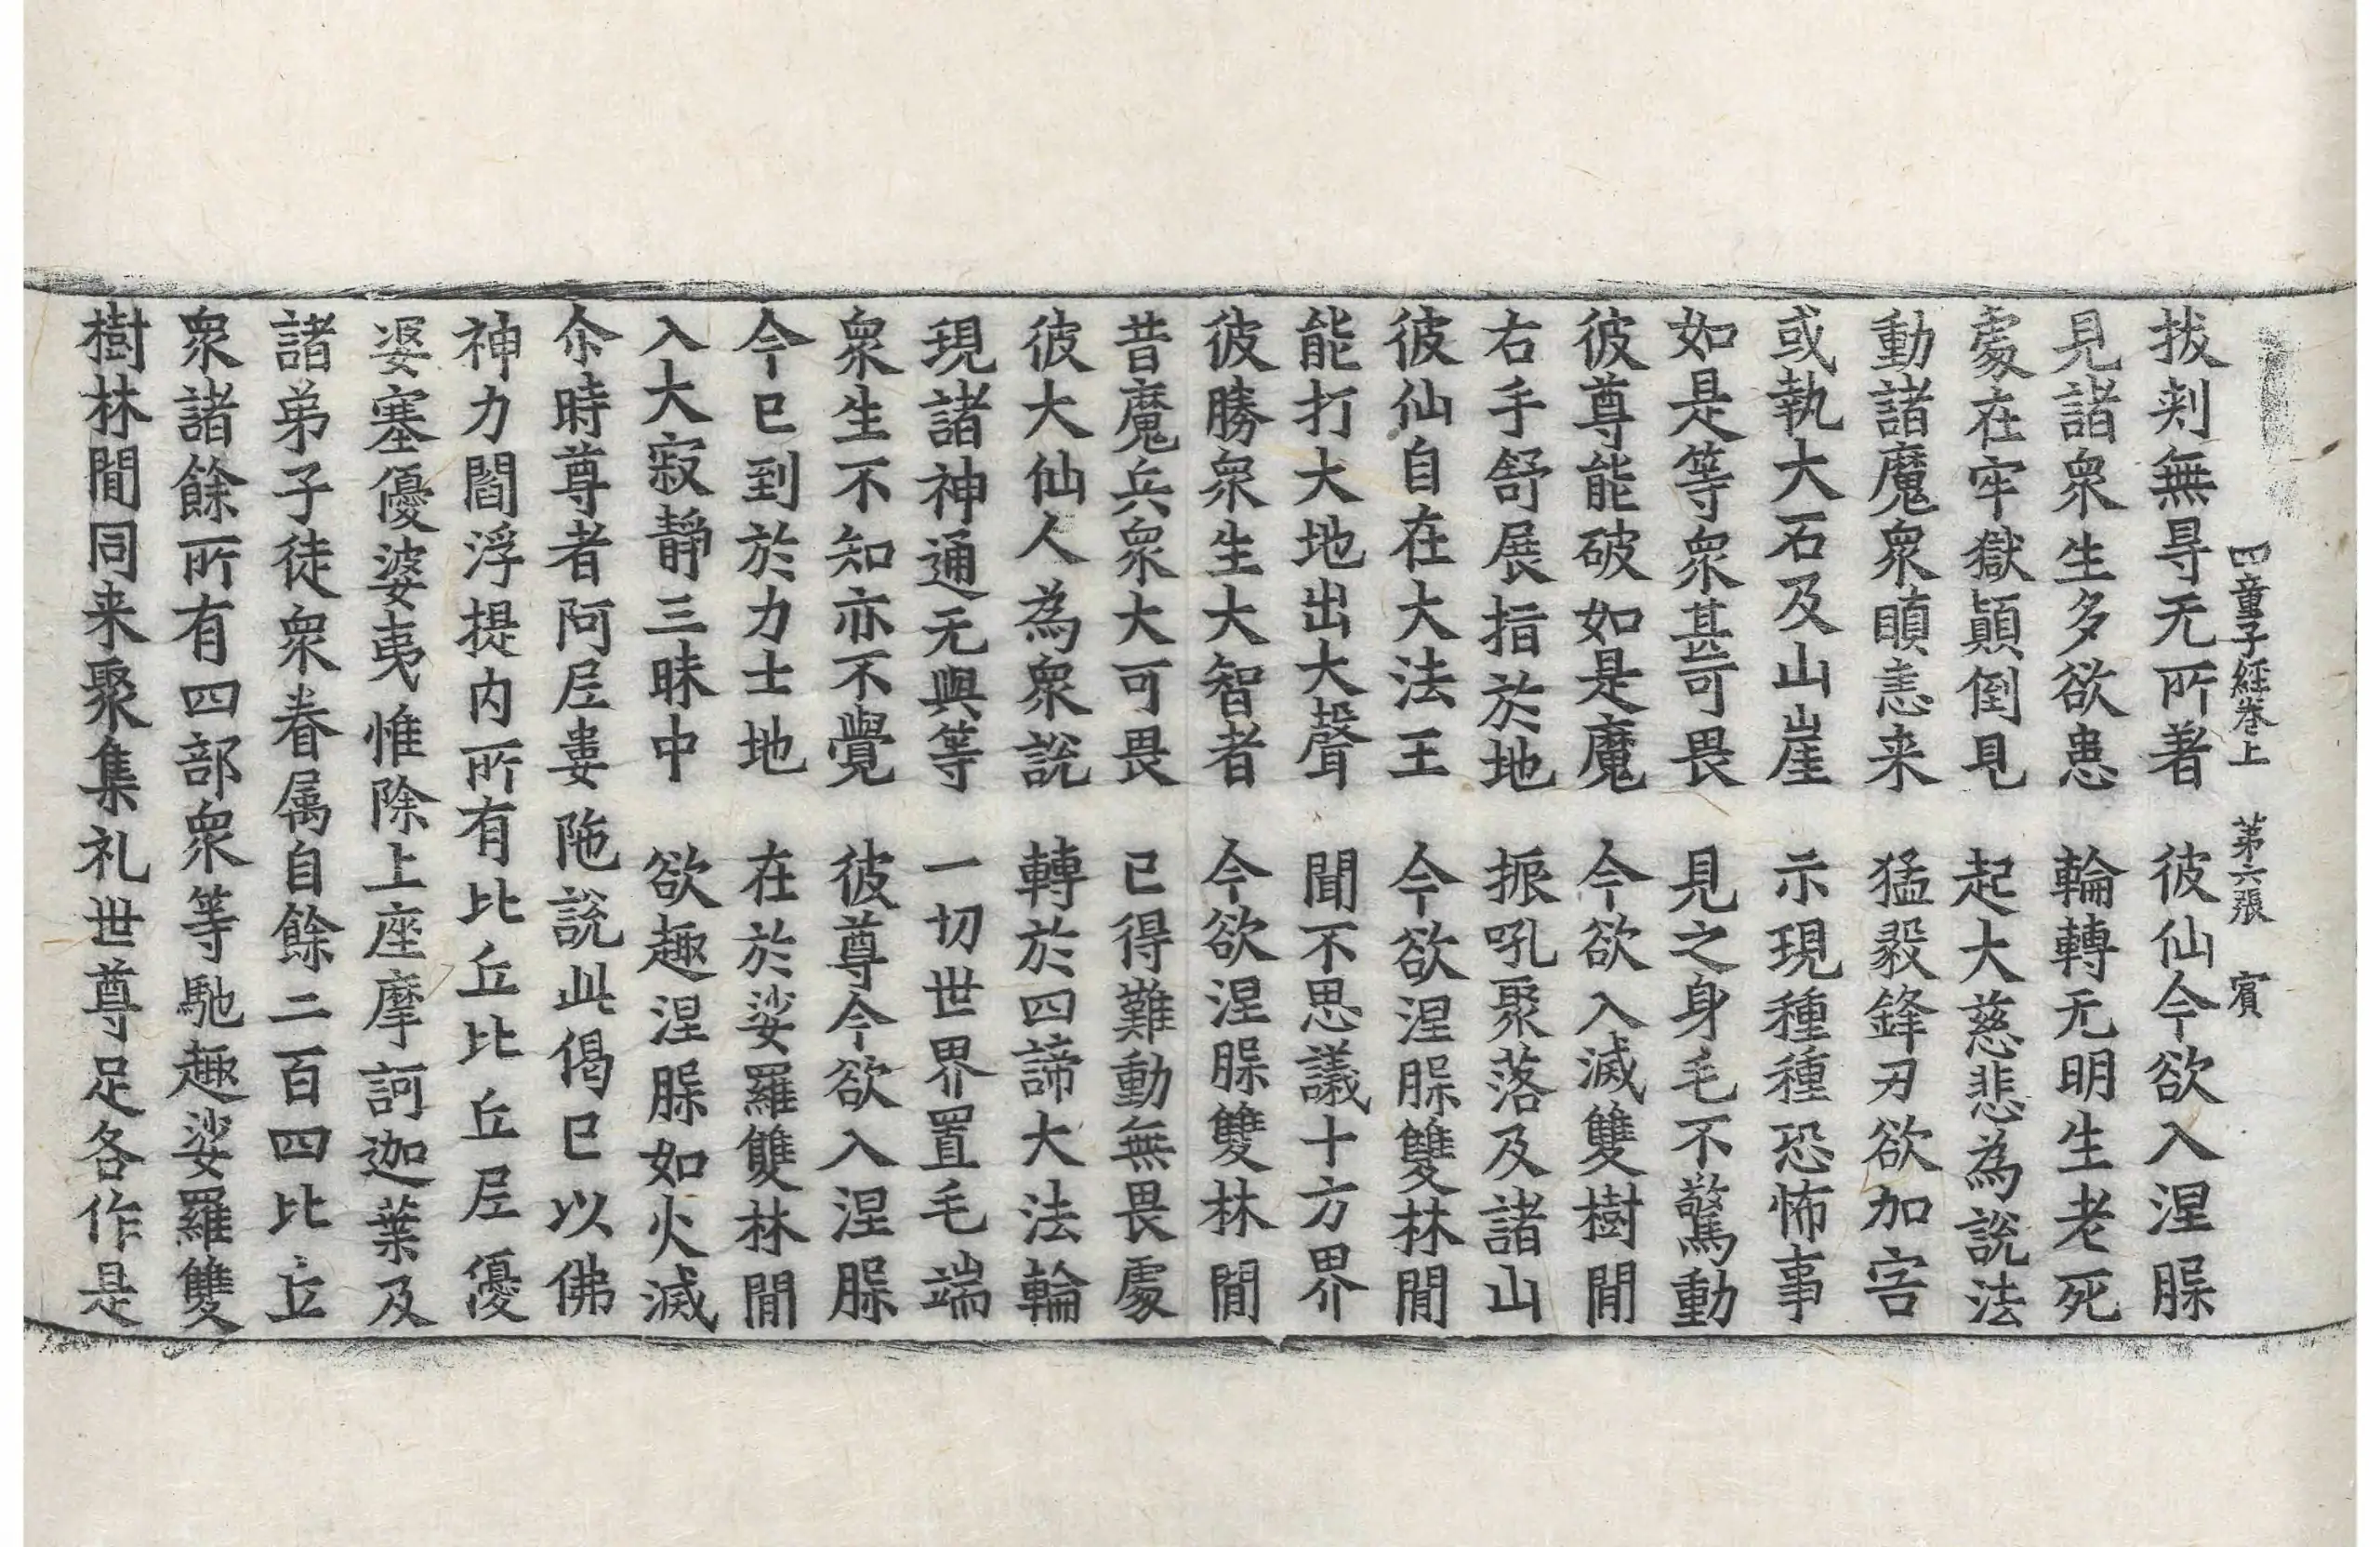 四童子經卷上　第六張　賓
拔刾無㝵无所著　彼仙今欲入涅槃
見諸衆生多欲患　輪轉无明生老死
處在牢獄顛倒見　起大慈悲為說法
動諸魔衆瞋恚来　猛毅鋒刃欲加害
或執大石及山崖　示現種種恐怖事
如是等衆甚可畏　見之身毛不驚動
彼尊能破如是魔　今欲入滅雙樹閒
右手舒展指於地　振吼聚落及諸山
彼仙自在大法王　今欲涅槃雙林閒
能打大地出大聲　聞不思議十方界
彼勝衆生大智者　今欲涅槃雙林閒
昔魔兵衆大可畏　已得難動無畏處
彼大仙人為衆說　轉於四諦大法輪
現諸神通无與等　一切世界置毛端
衆生不知亦不覺　彼尊今欲入涅槃
今已到於力士地　在於娑羅雙林閒
入大寂靜三昧中　欲趣涅槃如火滅
尒時尊者阿㞐婁陁說此偈已以佛
神力閻浮提内所有比丘比丘㞐優
婆塞優婆夷惟除上座摩訶迦葉及
諸弟子徒衆眷属自餘二百四比丘
衆諸餘所有四部衆等馳趣娑羅雙
樹林閒同来聚集礼世尊足各作是